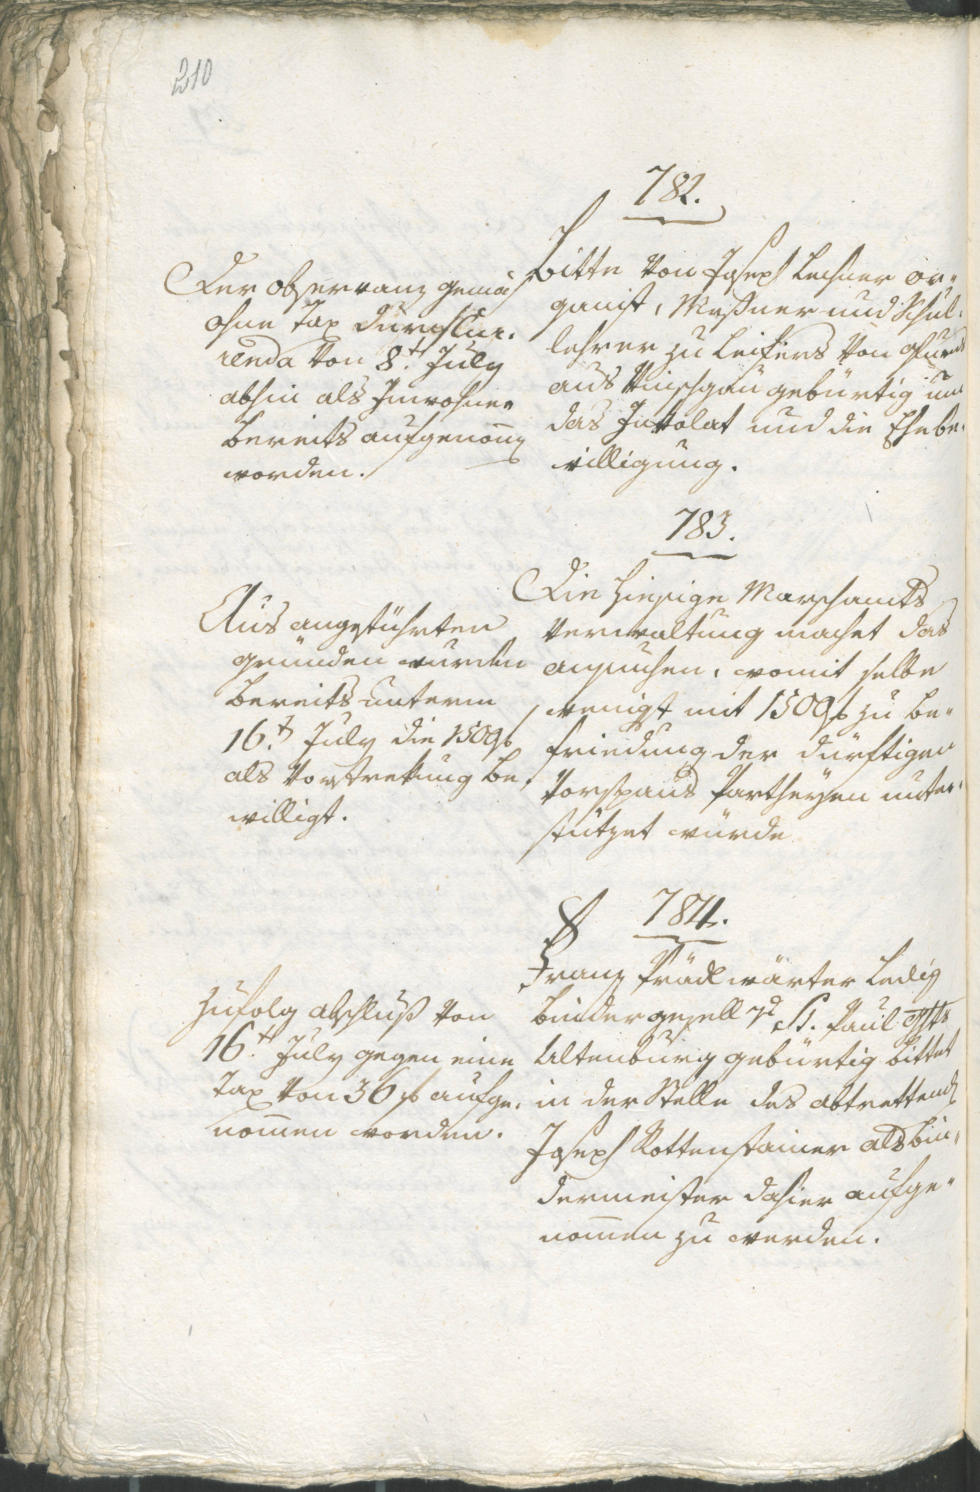 210
782.
Der observanz gemäß
ohne Tax durch Cur-
renda von 8t July
abhin als Inwohner
bereits aufgenom̅en
worden.
Bitte von Joseph Lechner or-
ganist, Meßner und Schul-
lehrer zu Leifers von Glurns
aus Vinschgau gebürtig um
das Inkolat und die Ehebe-
willigung.
783.
Aus angeführten
gründen wurden
bereits unterm
16.t July die 1500 f
als Vorstrekung be-
willigt.
Die hiesige Marschamts
Verwaltung machet das
ansuchen, womit selbe
wenigst mit 1500 f zu be-
friedung der dürftigen
Vorspans Partheyen unter-
stützet würde
784.
Zufolg abschluß von
16.t July gegen eine
Tax von 36 f aufge-
nom̅en worden.
Franz Prädlwärter ledig
bindergesell St. Paul
Altenburg gebürtig bittet
in der Stelle des abtrettend
Joseph Rottenstainer als Bin-
dermeister dahier aufge-
nom̅en zu werden.